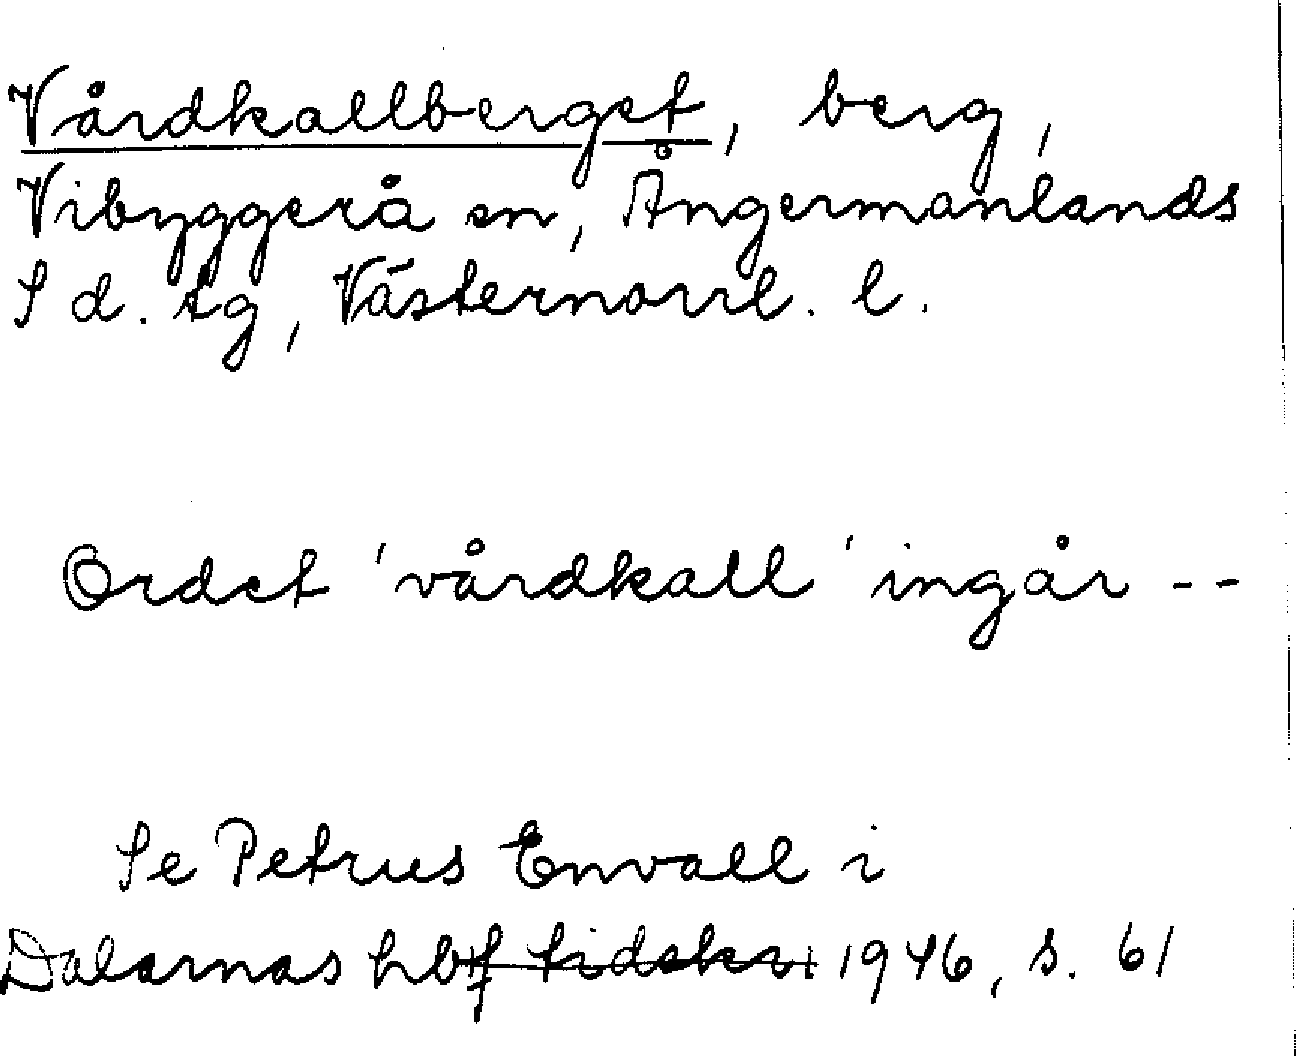 Vårdkallberget, berg,
Vibyggerå sn, Ångermanlands
S d. tg, Västernorrl. l.
Ordet 'vårdkall' ingår --
Se Petrus Envall i
Dalarnas hbf tidskri 1946, s. 61